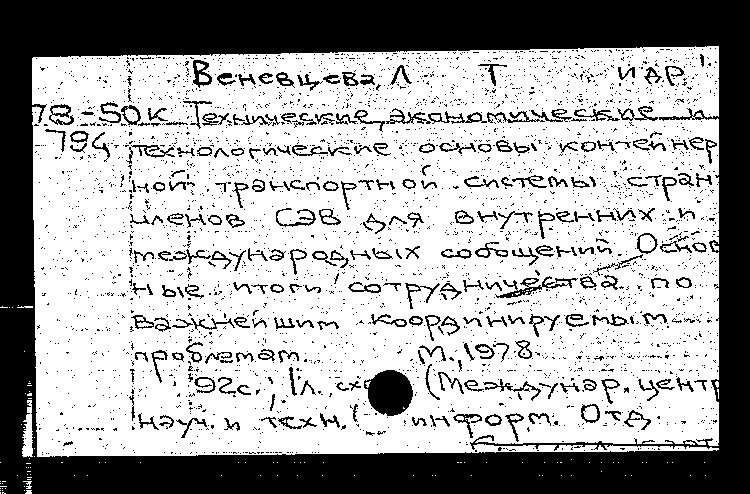 Веневцева, Л Т и др
78-50К Технические, экономические и
794 технологические основы контейнер
ной транспортной системы стран
членов СЭВ для внутренних и
международных сообщений Основ
ные итоги сотрудничества по
важнейшим координируемым
проблемам. М., 1978
92с.; 1л. схе (Междунар. центр
науч. и техн. информ. Отд.